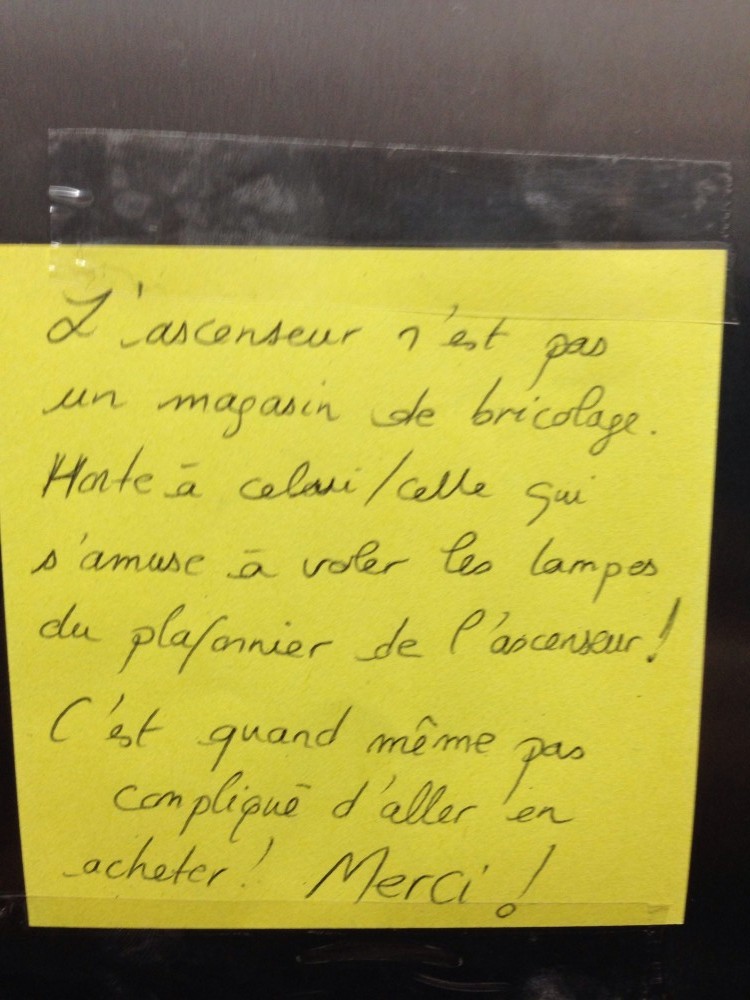 L'ascenseur n'est pas
un magasin de bricolage.
Honte à celui/celle qui
s'amuse à voler les lampes
du plafonnier de l'ascenseur !
C'est quand même pas
compliqué d'aller en
acheter ! Merci !